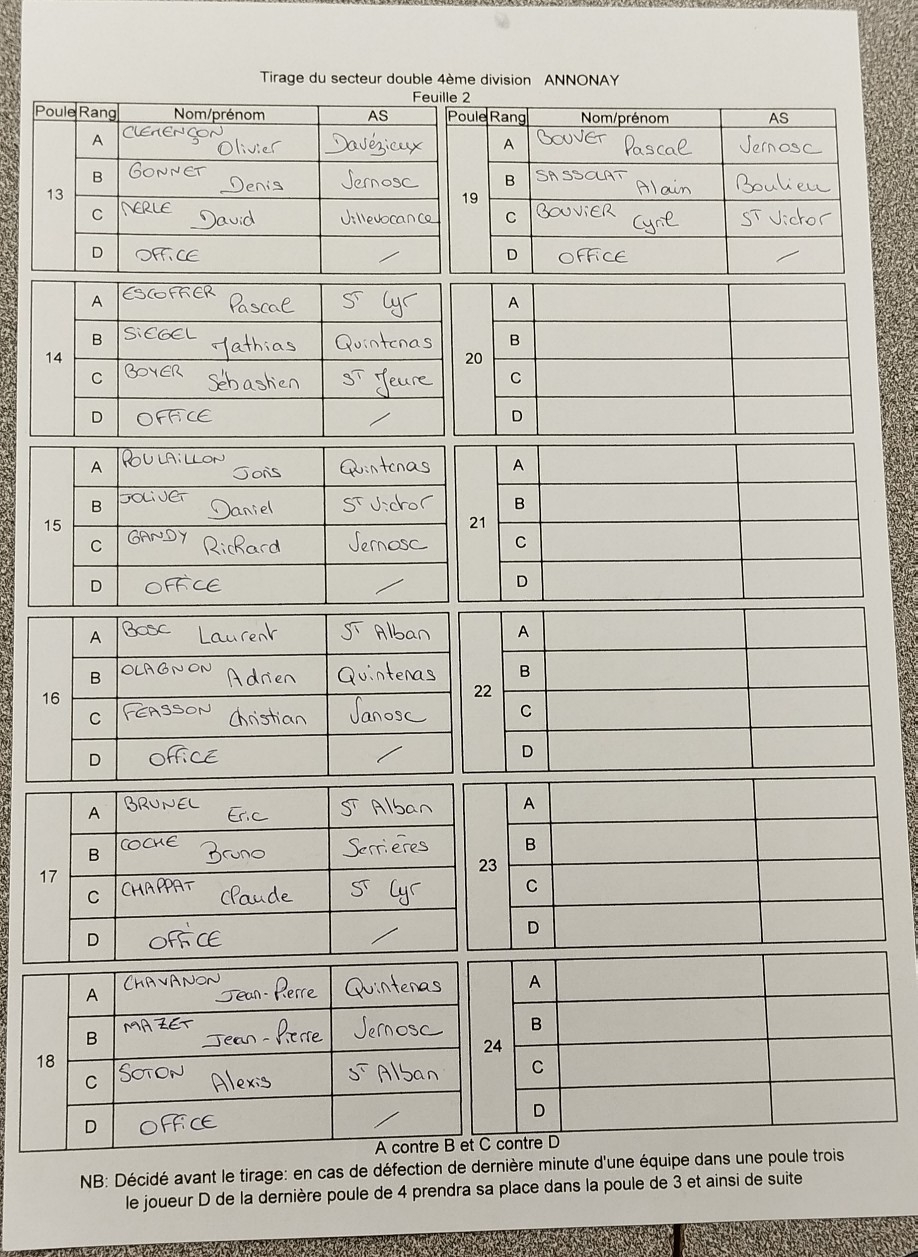 Tirage du secteur double 4ème division ANNONAY
Feuille 2
Poule Rang Nom/prénom AS
13
A CLEMENÇON Olivier Davézieux
B BONNET Denis Vernosc
C NERLE David Villevocance
D OFFICE /
14
A ESCOFFIER Pascal ST Cyr
B SIEGEL Mathias Quintenas
C BOYER Sébastien ST Jeure
D OFFICE /
15
A POULAILLON Joris Quintenas
B JOLIVET Daniel ST Victor
C GANDY Richard Vernosc
D OFFICE /
16
A BOSC Laurent ST Alban
B OLAGNON Adrien Quintenas
C FEASSON Christian Vanosc
D OFFICE /
17
A BRUNEL Eric ST Alban
B COCHE Bruno Serrières
C CHAPPAT Claude ST Cyr
D OFFICE /
18
A CHAVANON Jean-Pierre Quintenas
B MAZET Jean-Pierre Vernosc
C SOTON Alexis ST Alban
D OFFICE /
Poule Rang Nom/prénom AS
19
A BOUVET Pascal Vernosc
B SASSOLAT Alain Boulieu
C BOUVIER Cyril ST Victor
D OFFICE /
20
A
B
C
D
21
A
B
C
D
22
A
B
C
D
23
A
B
C
D
24
A
B
C
D
A contre B et C contre D
NB: Décidé avant le tirage: en cas de défection de dernière minute d'une équipe dans une poule trois
le joueur D de la dernière poule de 4 prendra sa place dans la poule de 3 et ainsi de suite